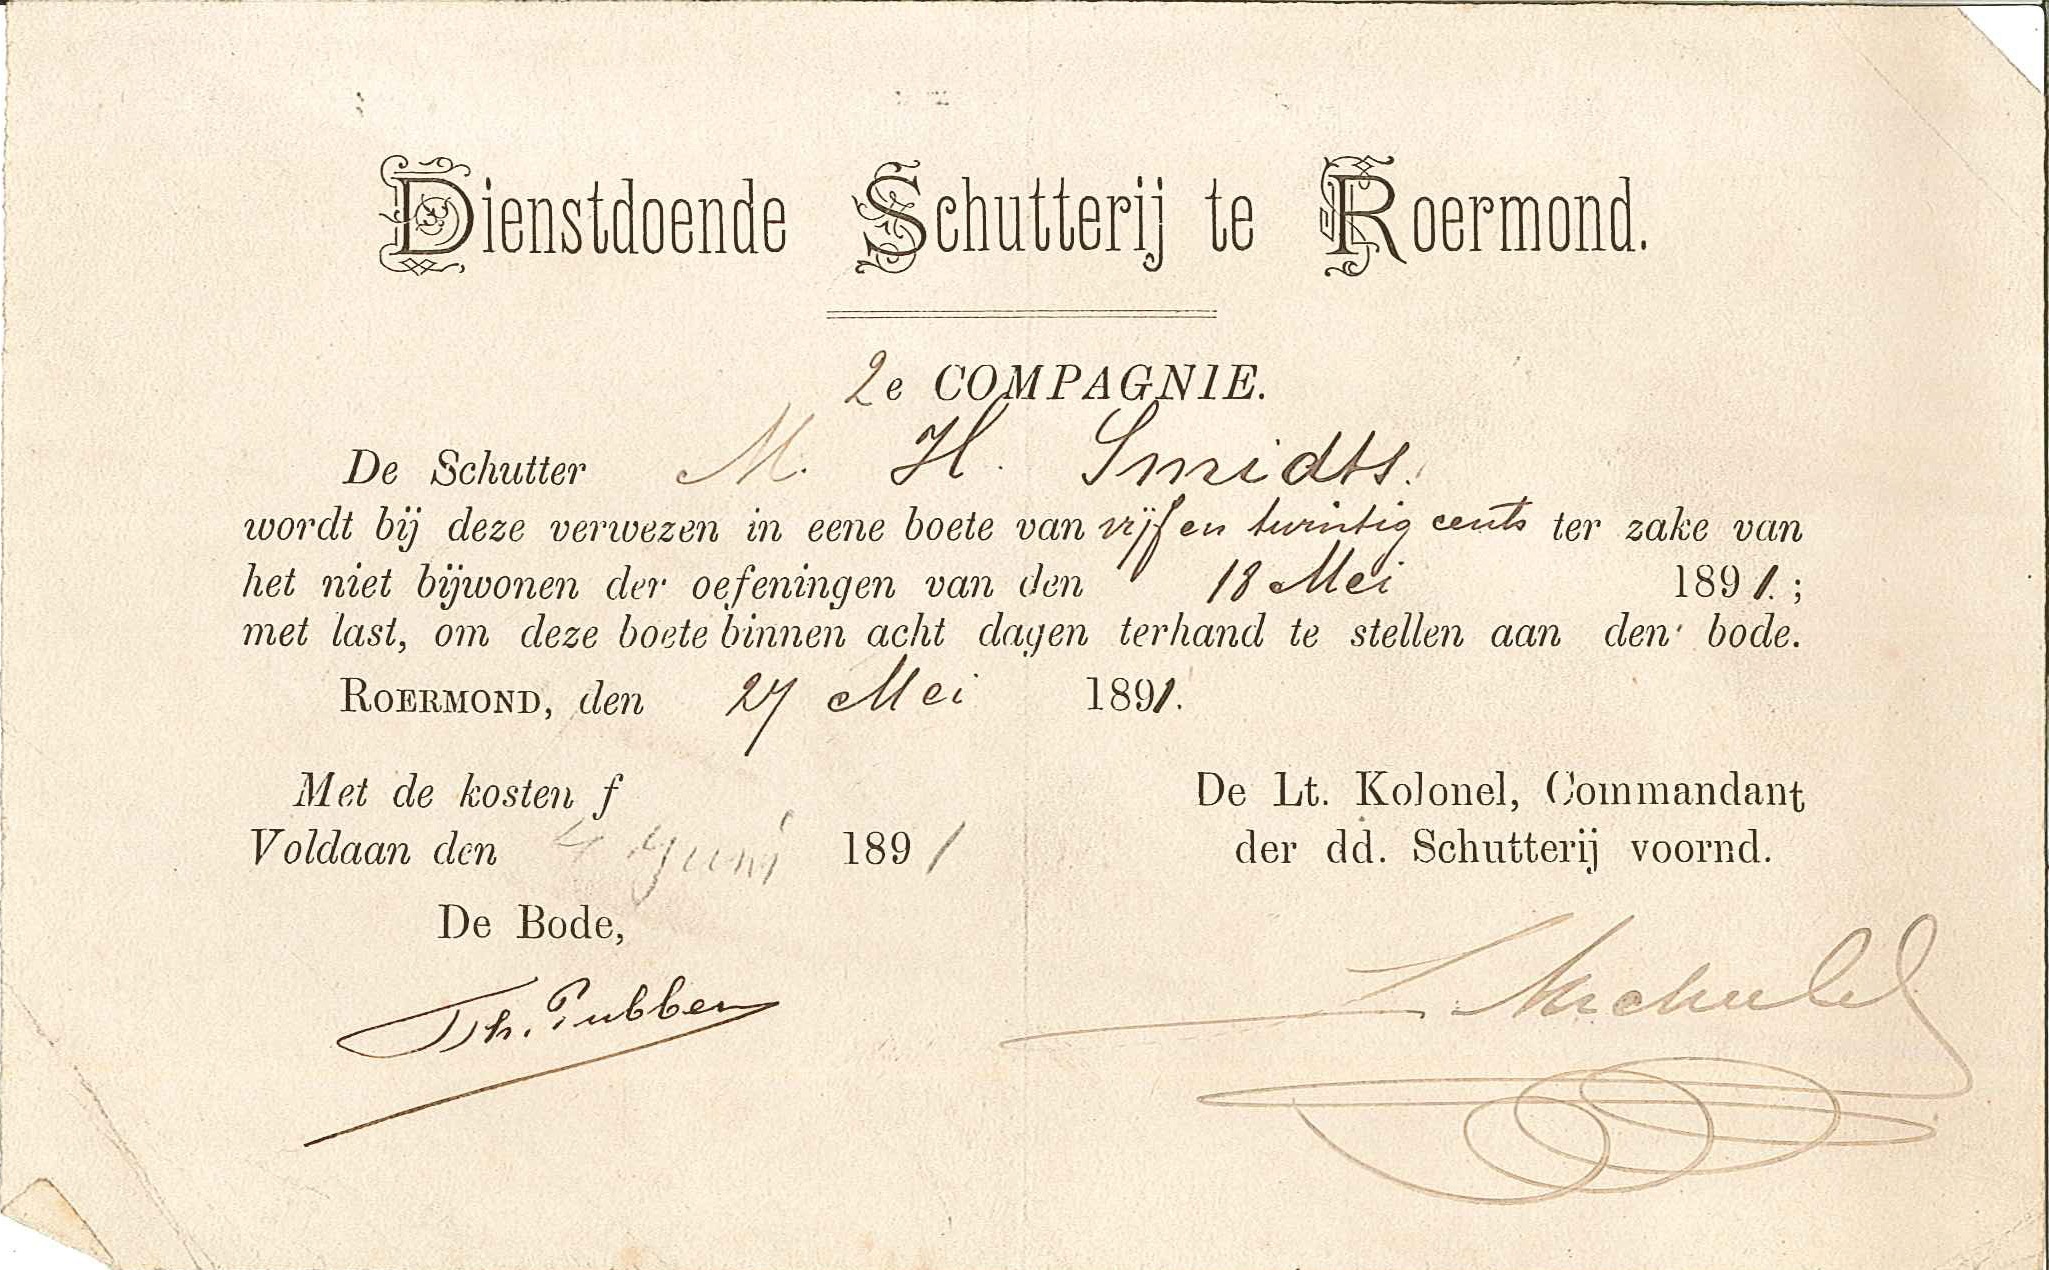 Dienstdoende Schutterij te Roermond.
2e COMPAGNIE.
De Schutter M. H. Smidts.
wordt bij deze verwezen in eene boete van vijf en twintig cents ter zake van
het niet bijwonen der oefeningen van den 18 Mei 1891.;
met last, om deze boete binnen acht dagen terhand te stellen aan den bode.
ROERMOND, den 27 Mei 1891.
Met de kosten f
Voldaan den 4 Juni 1891
De Bode,
Th. Tubben
De Lt. Kolonel, Commandant
der dd. Schutterij voornd.
L Michiels